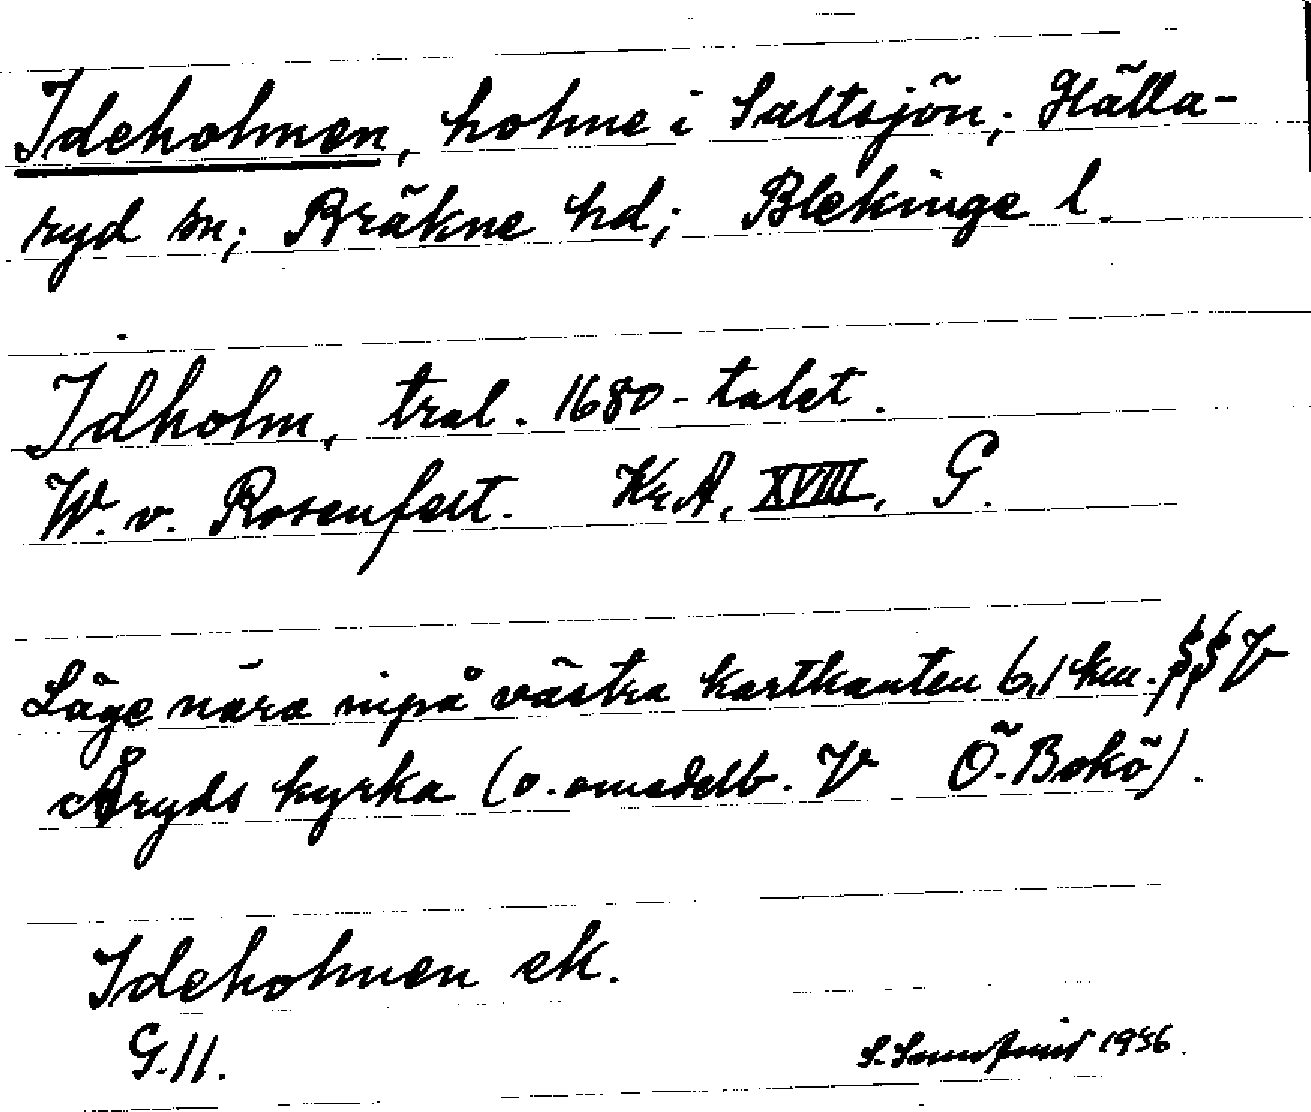 Ideholmen, holme i Saltsjön; Hälla-
ryd sn; Bräkne hd; Blekinge l.
Idholm, tral. 1680-talet.
W. v. Rosenfelt. Kr.A, XVIII, G.
Läge nära inpå västra kartkanten 6,1 km. V
Åryds kyrka (o. omedelb. V Ö. Bokö).
Ideholmen ek.
G.11.
1936